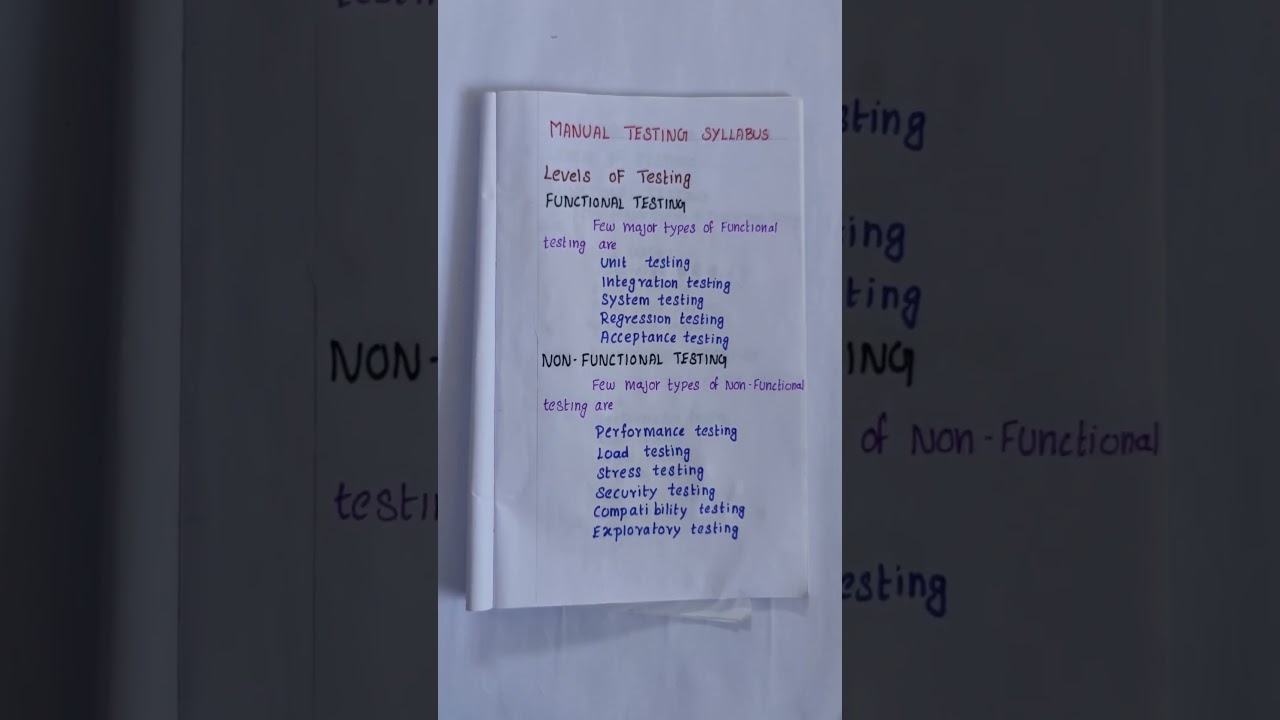 MANUAL TESTING SYLLABUS
Levels of Testing
FUNCTIONAL TESTING
Few major types of Functional
testing are
Unit testing
Integration testing
System testing
Regression testing
Acceptance testing
NON-FUNCTIONAL TESTING
Few major types of Non-Functional
testing are
Performance testing
Load testing
Stress testing
Security testing
Compatibility testing
Exploratory testing